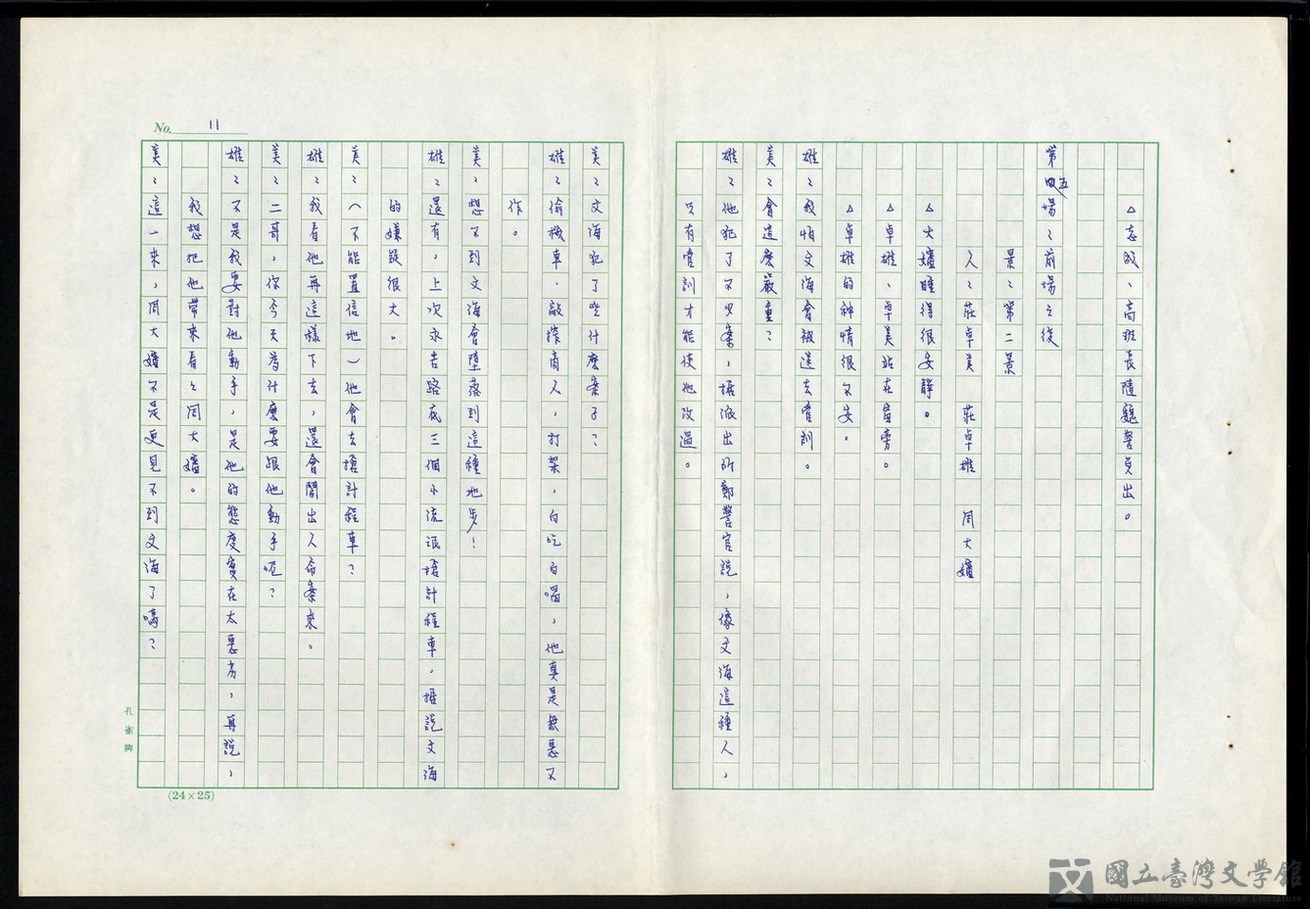 △志成、高班長隨魏警員出。
第五場:前場之後
景:第二景
人:莊卓美 莊卓雄 周大嬸
△大嬸睡得很安靜。
△卓雄、卓美站在窗旁。
△卓雄的神情很不安。
雄:我怕文海會被送去管訓。
美:會這麼嚴重?
雄:他犯了不少案,據派出所鄭警官說,像文海這種人,
只有管訓才能使他改過。
美:文海犯了些什麼案子?
雄:偷機車、敲搾商人,打架,白吃白喝,他真是無惡不
作。
美:想不到文海會墮落到這種地步!
雄:還有,上次永吉路底三個小流氓搶計程車,據說文海
的嫌疑很大。
美:(不能置信地)他會去搶計程車?
雄:我看他再這樣下去,還會鬧出人命案來。
美:二哥,你今天為什麼要跟他動手呢?
雄:不是我要對他動手,是他的態度實在太惡劣,再說,
我想把他帶來看看周大嬸。
美:這一來,周大嬸不是更見不到文海了嗎?
No. 11
孔雀牌
(24×25)
國立臺灣文學館
National Museum of Taiwan Literature